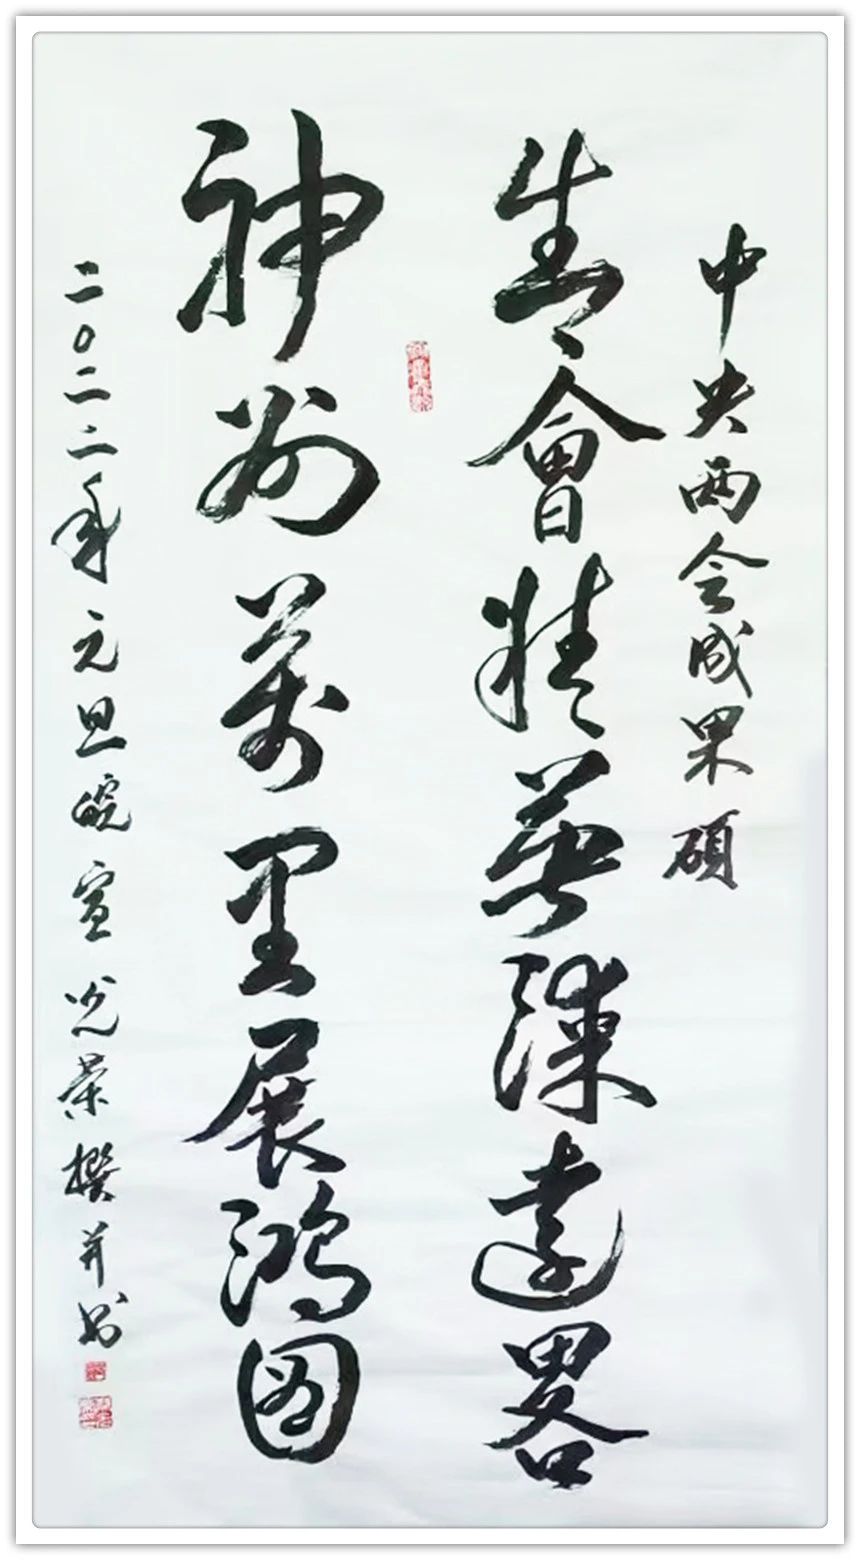 中央两会成果硕
生會精英諫遠畧
神州萬里展鴻图
二〇二二年元旦皖宣光荣撰并书